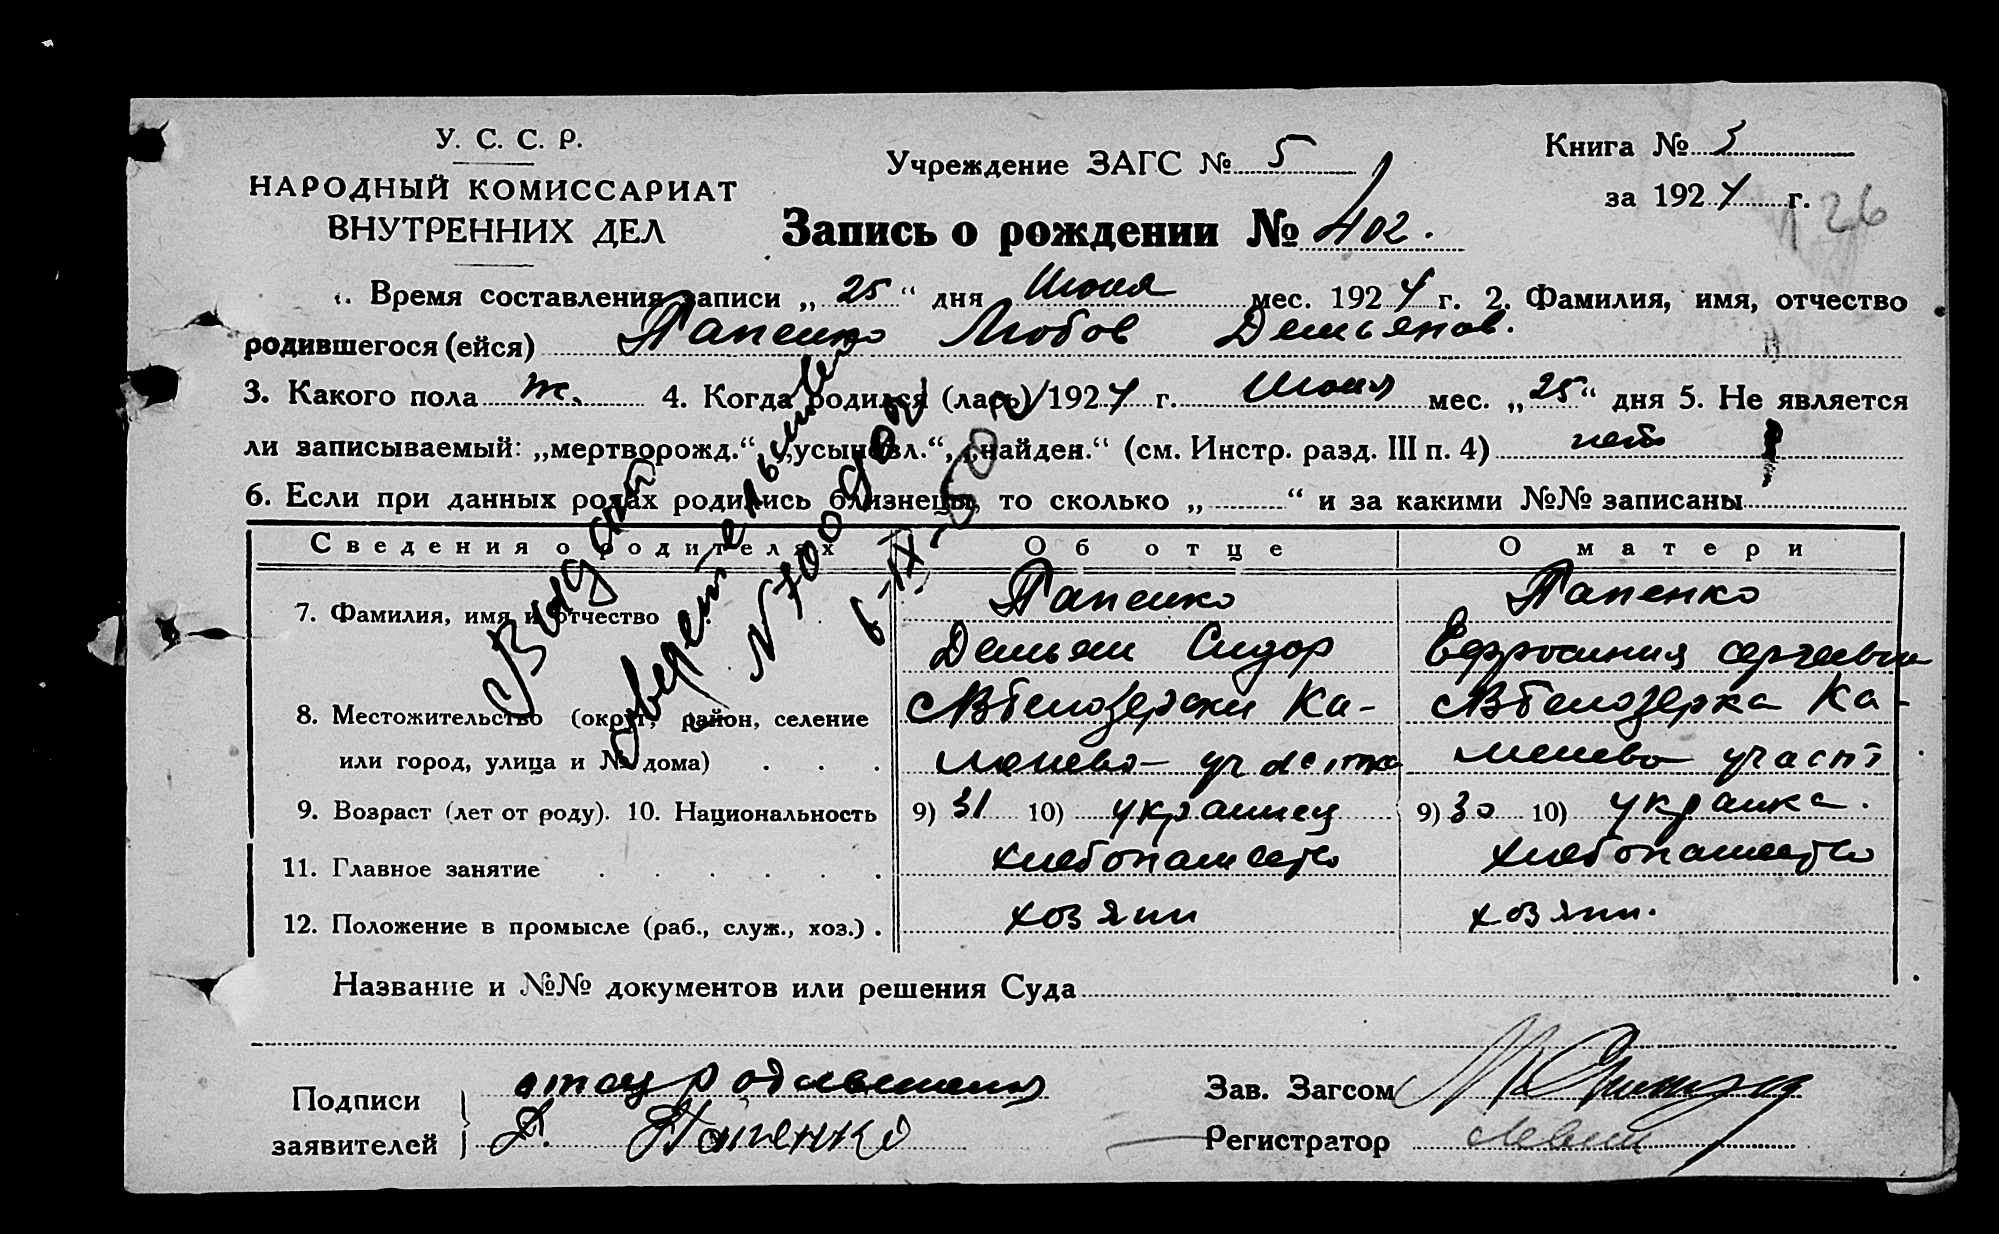 У. С. С. Р.
НАРОДНЫЙ КОМИССАРИАТ
ВНУТРЕННИХ ДЕЛ
Учреждение ЗАГС № 5
Книга № 3
за 1924 г.
26
Запись о рождении № 402.
1. Время составления записи „25“ дня Июня мес. 1924 г. 2. Фамилия, имя, отчество
родившегося (ейся) Папенко Любов Демьянов.
3. Какого пола ж. 4. Когда родился (лась) 1924 г. Июня мес. „25“ дня 5. Не является
ли записываемый: „мертворожд.“, „усыновл.“, „найден.“ (см. Инстр. разд. III п. 4) нет
6. Если при данных родах родились близнецы, то сколько „ “ и за какими №№ записаны
Сведения о родителях Об отце О матери
7. Фамилия, имя и отчество Папенко Папенко
Демьян Сидор Ефросиния сергеевна
8. Местожительство (округ, район, селение Ка- Ка-
или город, улица и № дома) менево участка менево участ
9. Возраст (лет от роду). 10. Национальность 9) 31 10) украинец 9) 30 10) украинка.
11. Главное занятие хлебопашество хлебопашество
12. Положение в промысле (раб., служ., хоз.) хозяин хозяин.
Выдано
Название и №№ документов или решения Суда
Подписи заявителей
отец родившегося
Д. Папенко
Зав. Загсом
Регистратор Левин